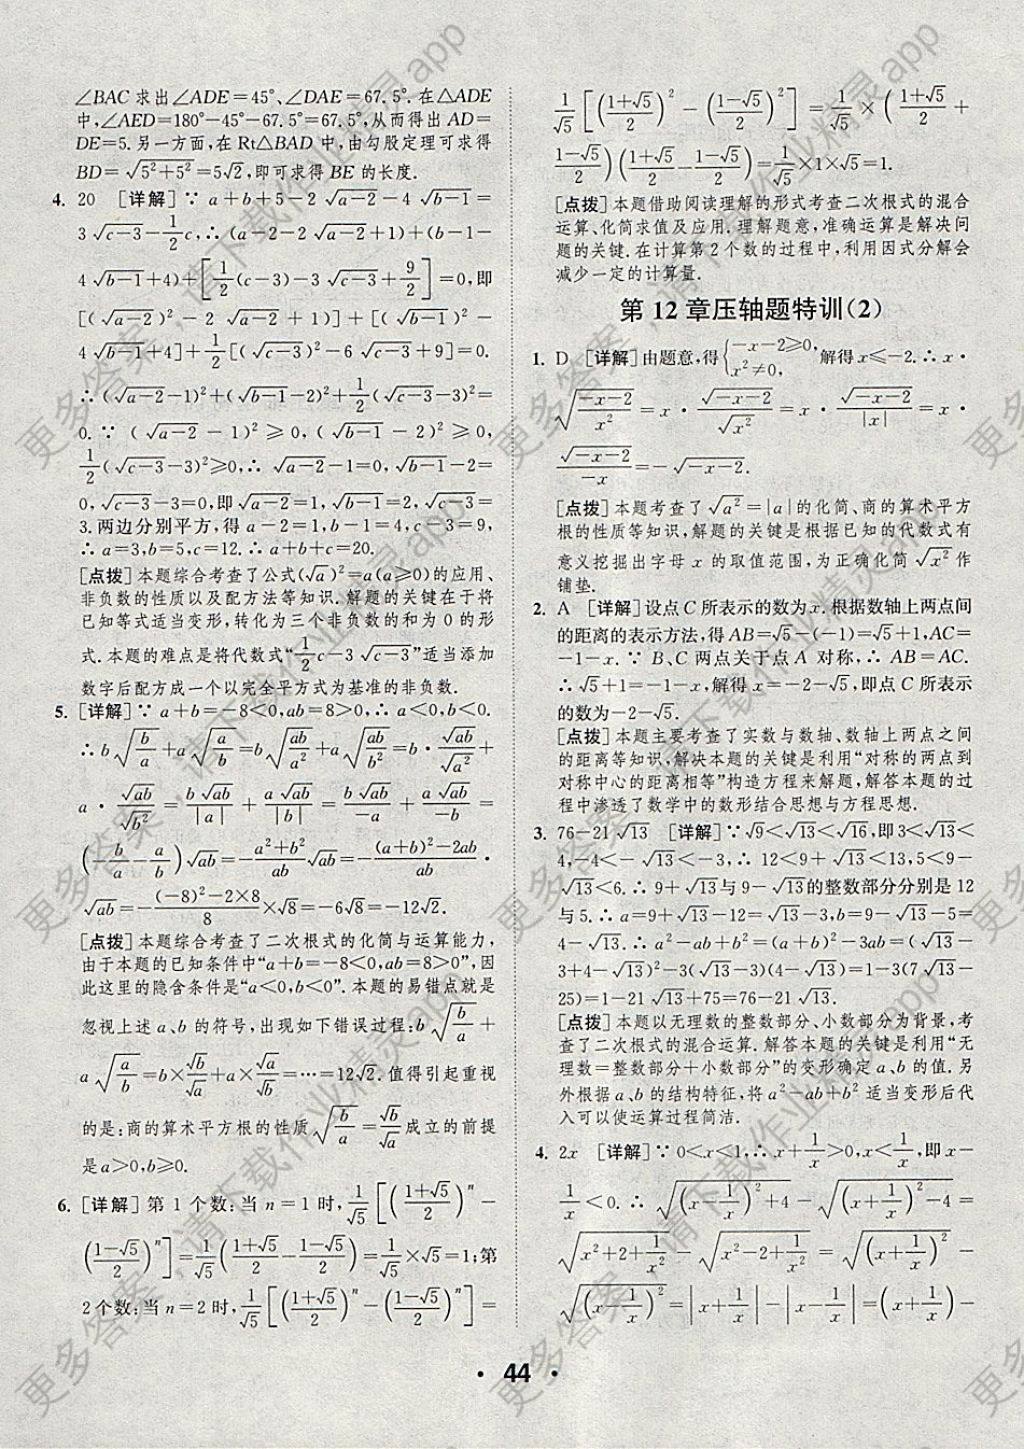 ∠BAC 求出∠ADE=45°、∠DAE=67.5°.在△ADE
中,∠AED=180°-45°-67.5°=67.5°,从而得出 AD=
DE=5.另一方面,在 Rt△BAD 中,由勾股定理可求得
BD=√(5²+5²)=5√2,即可求得 BE 的长度.
4. 20 [详解]∵ a+b+5-2√(a-2)-4√(b-1)=
3√(c-3)-1/2c,∴(a-2-2√(a-2)+1)+(b-1-
4√(b-1)+4)+[1/2(c-3)-3√(c-3)+9/2]=0,即
[(√(a-2))²-2√(a-2)+1)]+[(√(b-1))²-
4√(b-1)+4]+1/2[(√(c-3))²-6√(c-3)+9]=0.
∴(√(a-2)-1)²+(√(b-1)-2)²+1/2(√(c-3)-3)²=
0.∵(√(a-2)-1)²≥0,(√(b-1)-2)²≥0,
1/2(√(c-3)-3)²≥0,∴√(a-2)-1=0,√(b-1)-2=
0,√(c-3)-3=0,即√(a-2)=1,√(b-1)=2,√(c-3)=
3.两边分别平方,得 a-2=1,b-1=4,c-3=9,
∴a=3,b=5,c=12.∴a+b+c=20.
[点拨]本题综合考查了公式(√a)²=a(a≥0)的应用、
非负数的性质以及配方法等知识.解题的关键在于将
已知等式适当变形,转化为三个非负数的和为 0 的形
式.本题的难点是将代数式“1/2c-3√(c-3)”适当添加
数字后配方成一个以完全平方式为基准的非负数.
5. [详解]∵ a+b=-8<0,ab=8>0,∴a<0,b<0.
∴b√(b/a)+a√(a/b)=b√(ab/a²)+a√(ab/b²)=b·√ab/√a²+
a·√ab/√b²=b√ab/|a|+a√ab/|b|=b√ab/-a+a√ab/-b=
(-b/a-a/b)√ab=-(a²+b²)/ab√ab=-((a+b)²-2ab)/ab·
√ab=-((-8)²-2×8)/8×√8=-6√8=-12√2.
[点拨]本题综合考查了二次根式的化简与运算能力,
由于本题的已知条件中“a+b=-8<0,ab=8>0”,因
此这里的隐含条件是“a<0,b<0”.本题的易错点就是
忽视上述 a、b 的符号,出现如下错误过程:b√(b/a)+
a√(a/b)=b×√b/√a+a×√a/√b=…=12√2.值得引起重视
的是:商的算术平方根的性质√(b/a)=√b/√a成立的前提
是 a>0,b≥0.
6. [详解]第 1 个数:当 n=1 时,1/√5[((1+√5)/2)ⁿ-
((1-√5)/2)ⁿ]=1/√5((1+√5)/2-(1-√5)/2)=1/√5×√5=1;第
2 个数:当 n=2 时,1/√5[((1+√5)/2)ⁿ-((1-√5)/2)ⁿ]=
1/√5[((1+√5)/2)²-((1-√5)/2)²]=1/√5×((1+√5)/2+
(1-√5)/2)((1+√5)/2-(1-√5)/2)=1/√5×1×√5=1.
[点拨]本题借助阅读理解的形式考查二次根式的混合
运算、化简求值及应用.理解题意,准确运算是解决问
题的关键.在计算第 2 个数的过程中,利用因式分解会
减少一定的计算量.
第 12 章压轴题特训(2)
1. D [详解]由题意,得{-x-2≥0,x²≠0,解得 x≤-2.∴x·
√((-x-2)/x²)=x·√(-x-2)/√x²=x·√(-x-2)/|x|=x·
√(-x-2)/-x=-√(-x-2).
[点拨]本题考查了√a²=|a|的化简、商的算术平方
根的性质等知识,解题的关键是根据已知的代数式有
意义挖掘出字母 x 的取值范围,为正确化简√x²作
铺垫.
2. A [详解]设点 C 所表示的数为 x.根据数轴上两点间
的距离的表示方法,得 AB=√5-(-1)=√5+1,AC=
-1-x.∵B、C 两点关于点 A 对称,∴AB=AC.
∴√5+1=-1-x,解得 x=-2-√5,即点 C 所表示
的数为-2-√5.
[点拨]本题主要考查了实数与数轴、数轴上两点之间
的距离等知识,解决本题的关键是利用“对称的两点到
对称中心的距离相等”构造方程来解题,解答本题的过
程中渗透了数学中的数形结合思想与方程思想.
3. 76-21√13 [详解]∵√9<√13<√16,即 3<√13<
4,-4<-√13<-3,∴12<9+√13<13,5<9-
√13<6.∴9+√13与 9-√13的整数部分分别是 12
与 5.∴a=9+√13-12=√13-3,b=9-√13-5=
4-√13.∴a²-ab+b²=(a+b)²-3ab=(√13-
3+4-√13)²-3(√13-3)(4-√13)=1-3(7√13-
25)=1-21√13+75=76-21√13.
[点拨]本题以无理数的整数部分、小数部分为背景,考
查了二次根式的混合运算.解答本题的关键是利用“无
理数=整数部分+小数部分”的变形确定 a、b 的值.另
外根据 a、b 的结构特征,将 a²-ab+b² 适当变形后代
入可以使运算过程简洁.
4. 2x [详解]∵0<x<1,∴x+1/x>0,x<1/x,即 x-
1/x<0.∴√((x-1/x)²+4)-√((x+1/x)²-4)=
√(x²+2+1/x²)-√(x²-2+1/x²)=√((x+1/x)²)-
√((x-1/x)²)=|x+1/x|-|x-1/x|=(x+1/x)-
· 44 ·
更多答案,请下载作业精灵app